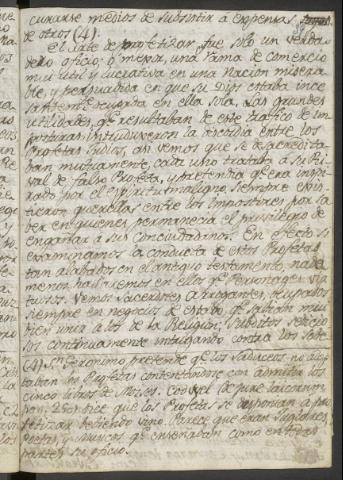 curarse medios de subsistir a expensas
de otros (4).
El arte de profetizar fue solo un verda-
dero oficio; o mejor, una rama de comercio
mui util y lucrativa en una Nacion misera-
ble, y persuadida en que su Dios estaba ince-
santemte ocupado en ella sola. Las grandes
utilidades, qe resultaban de este trafico de im-
posturas introduxeron la discordia entre los
Profetas Judios, asi vemos que se desacredita-
ban mutuamente, cada uno trataba a su Ri-
val de falso Profeta, y pretendia qe era inspi-
rado por el espiritu maligno. Siempre exis-
tieron querellas entre los Impostores por sa-
ber en quienes permanecia el privilegio de
engañar a sus Conciudadanos. En efecto si
examinamos la conducta de estos Profetas
tan alabados en el antiguo testamento, nada
menos hallaremos en ellos qe Personages vir-
tuosos. Vemos Sacerdotes arrogantes, ocupados
siempre en negocios de estado qe sabian mui
bien unir a los de la Religion; Subditos sedicio-
sos continuamente intrigando contra los
(4) Sn Geronimo pretende qe los Saduceos no
taban los Profetas contentandose con admitir los
cinco libros de Moises. de jure laicorum
dice que los Profetas se disponian a pro-
fetizar bebiendo vino. Parece que eran Juglares,
Poetas, y Musicos qe enseñaban como en todas
partes su oficio.